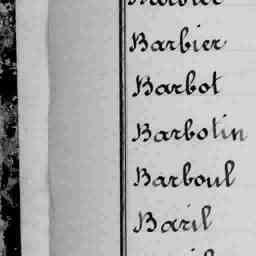 Barbier
Barbier
Barbot
Barbotin
Barboul
Baril